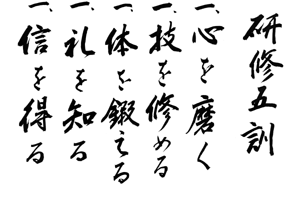 研修五訓
一、心を磨く
一、技を修める
一、体を鍛える
一、礼を知る
一、信を得る